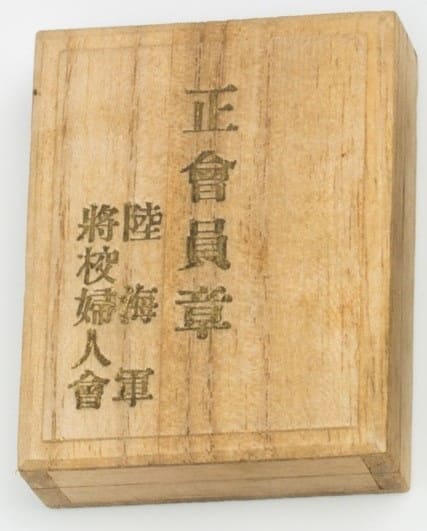 正會員章
陸海軍
將校婦人會